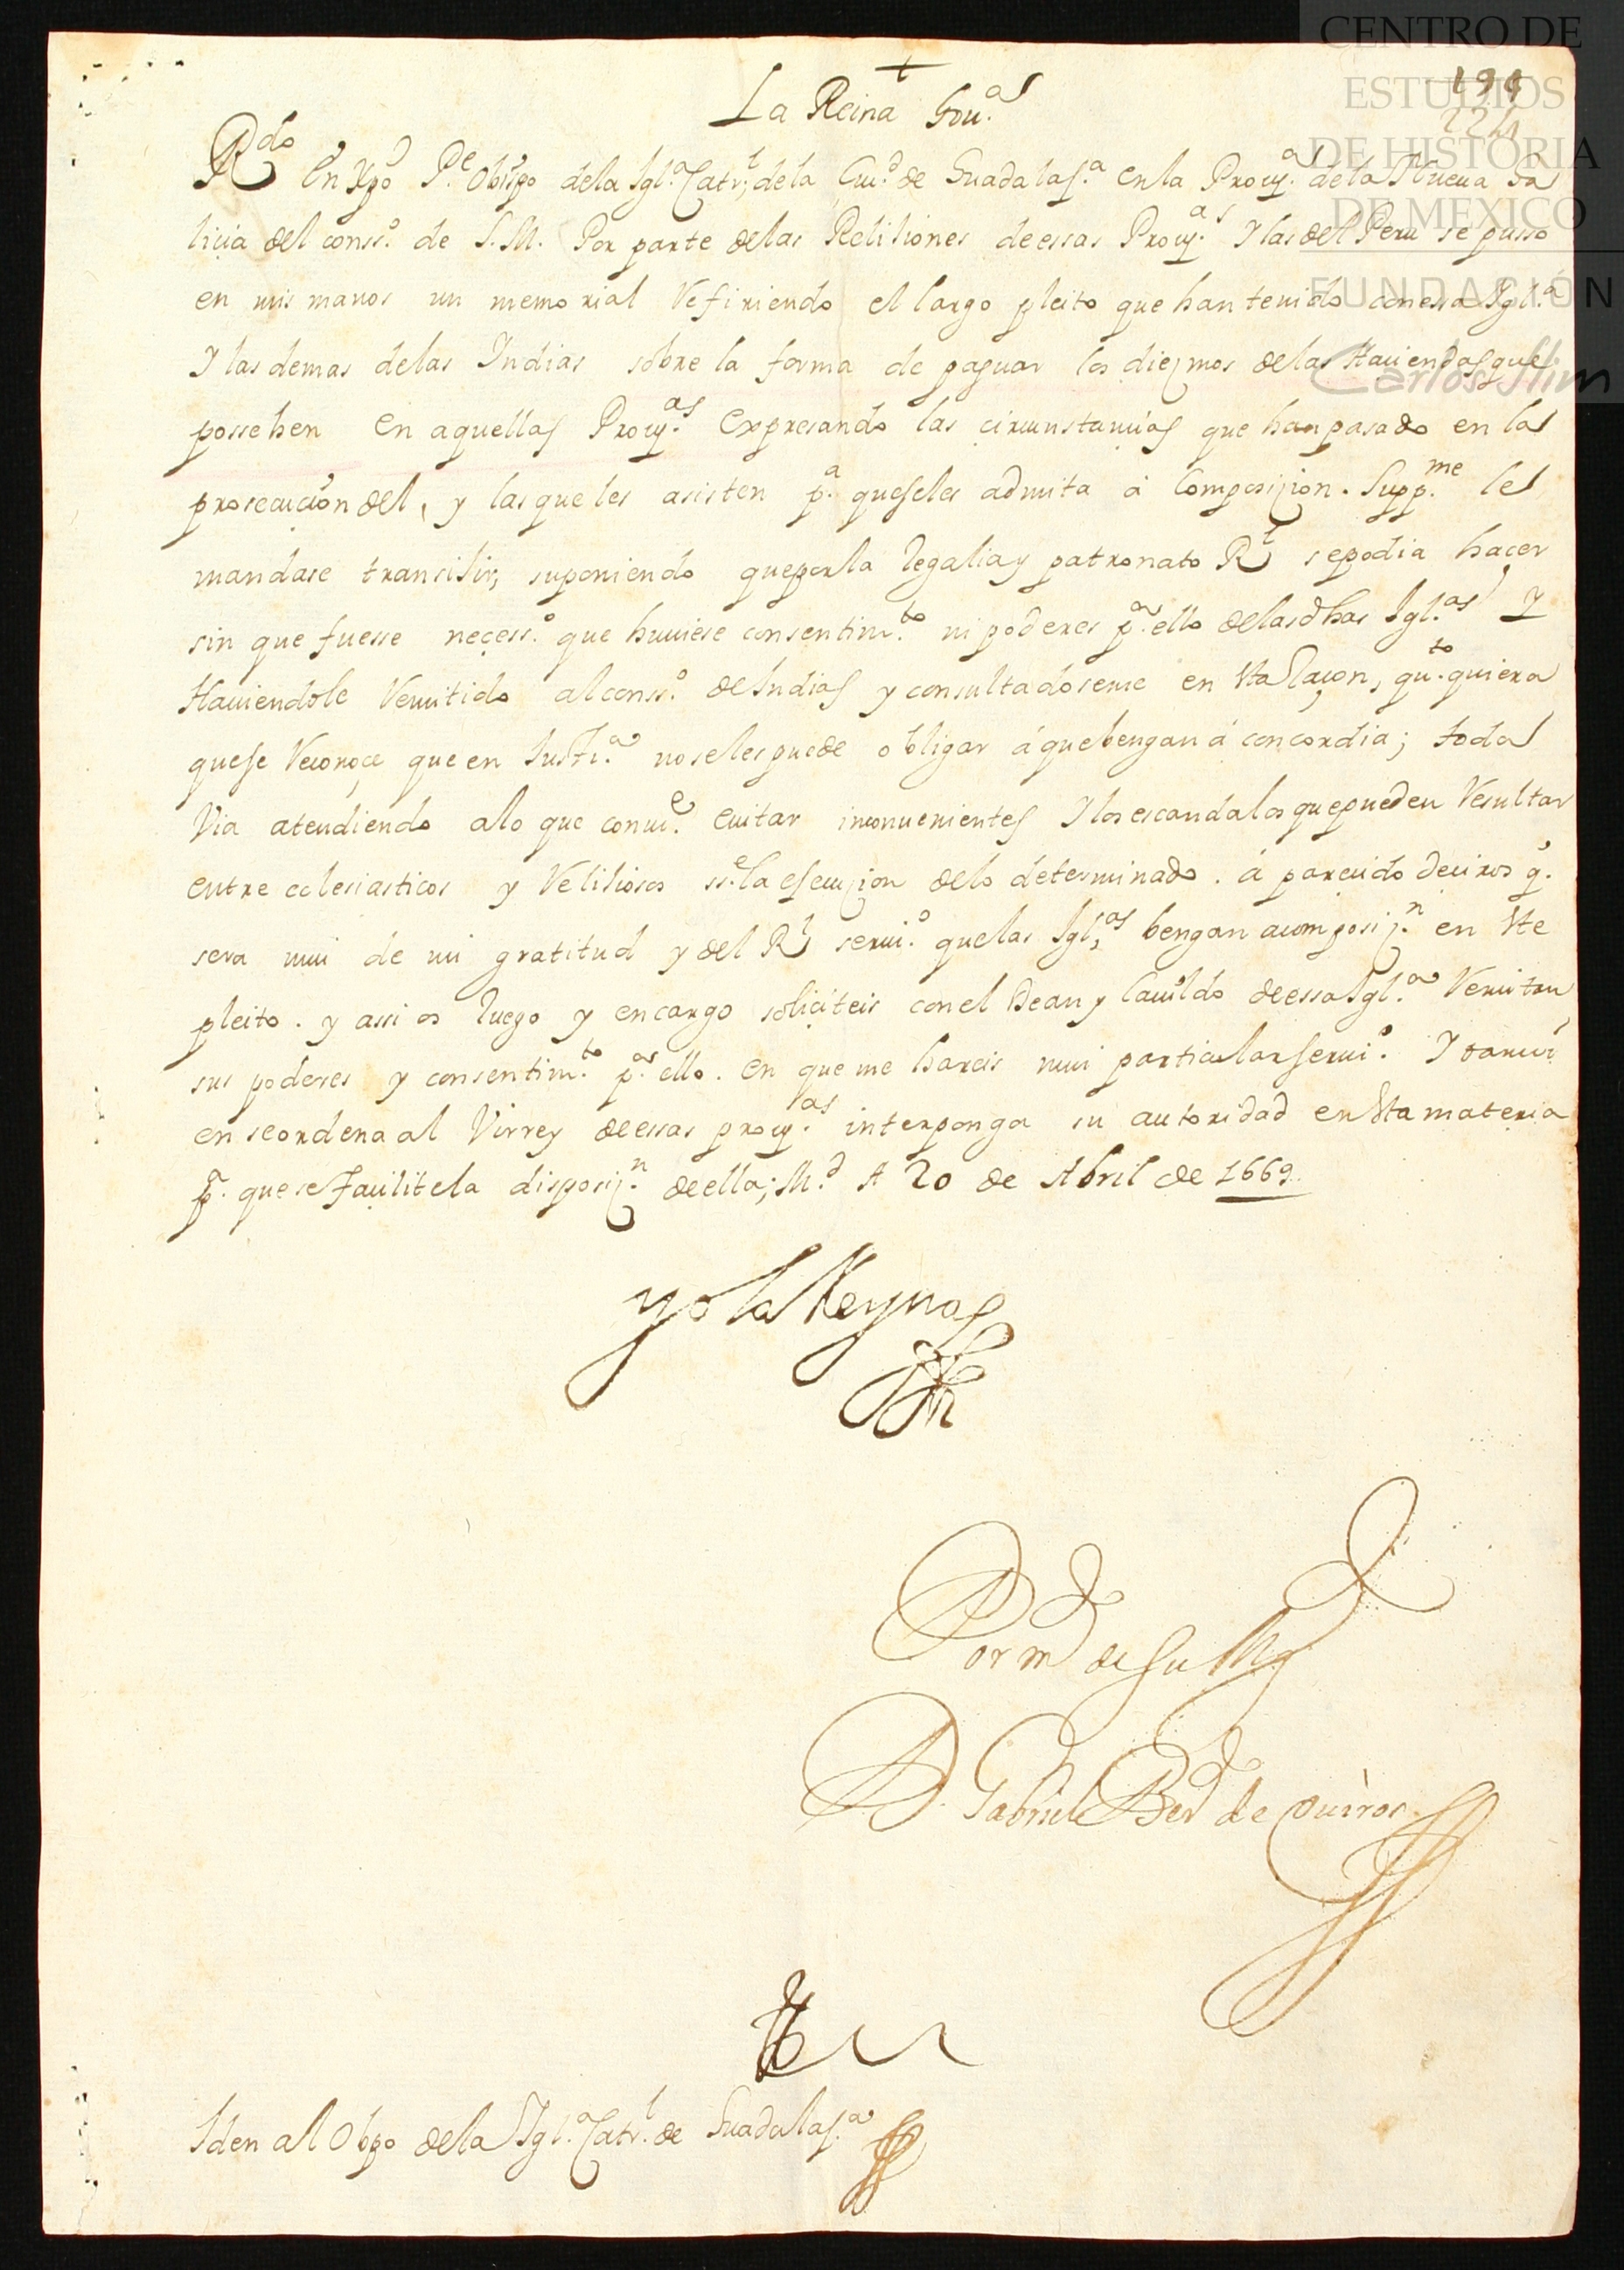 CENTRO DE
ESTUDIOS
DE HISTORIA
DE MEXICO
FUNDACIÓN
Carlos Slim
La Reina Gou.ª
R.do En Xpo P.e Obispo dela Igl.ª Catr.l dela Ciu.d de Guadalaj.ª enla Prouj.ª dela Nueua Ga
licia del conss.º de S.M. Por parte delas Relijiones deessas Prouj.as Y las del Peru se pusso
en mis manos un memorial Refiriendo el largo pleito que han tenido con essa Igl.ª
Y las demas delas Indias sobre la forma de paguar los diezmos delas Haciendas que
possehen en aquellas Prouj.as expresando las circunstancias que han pasado en la
prosecucion del, y las que les asisten p.ª que seles admita á Composizion. Supp.me les
mandase transijir, suponiendo que por la Regalia y patronato R.l se podia hacer
sin que fuesse necess.º que huuiese consentim.to ni poderes p.ª ello delas dhas Igl.as Y
Hauiendole Remitido al cons.º de Indias y consultadoseme en sta Raçon, qu.to quiera
quese Reconoçe que en Justi.ª no seles puede obligar á que bengan á concordia; toda
Via atendiendo alo que conui.e euitar inconuenientes Y los escandalos que pueden Resultar
entre eclesiasticos y Relijiosos ss.e la ejecuzion delo determinado. á parecido deciros q.
sera mui de mi gratitud y del R.l serui.º que las Igl.as bengan a composiz.n en ste
pleito. y assi os Ruego y encargo soliçiteis con el Dean y Cauildo de essa Igl.ª Remitan
sus poderes y consentim.to p.ª ello. en que me hareis mui particular serui.º Y tamui
en se ordena al Virrey de essas prouj.as interponga su autoridad en sta materia
p.ª que se façilite la disposiz.n de ella; M.d A 20 de Abril de 1669
yo la Reyna
Por m.do de su Mg.d
D. Gabriel Ber.do de Quiros
Iden al Obpo dela Igl.ª Catr.l de Guadalaj.ª